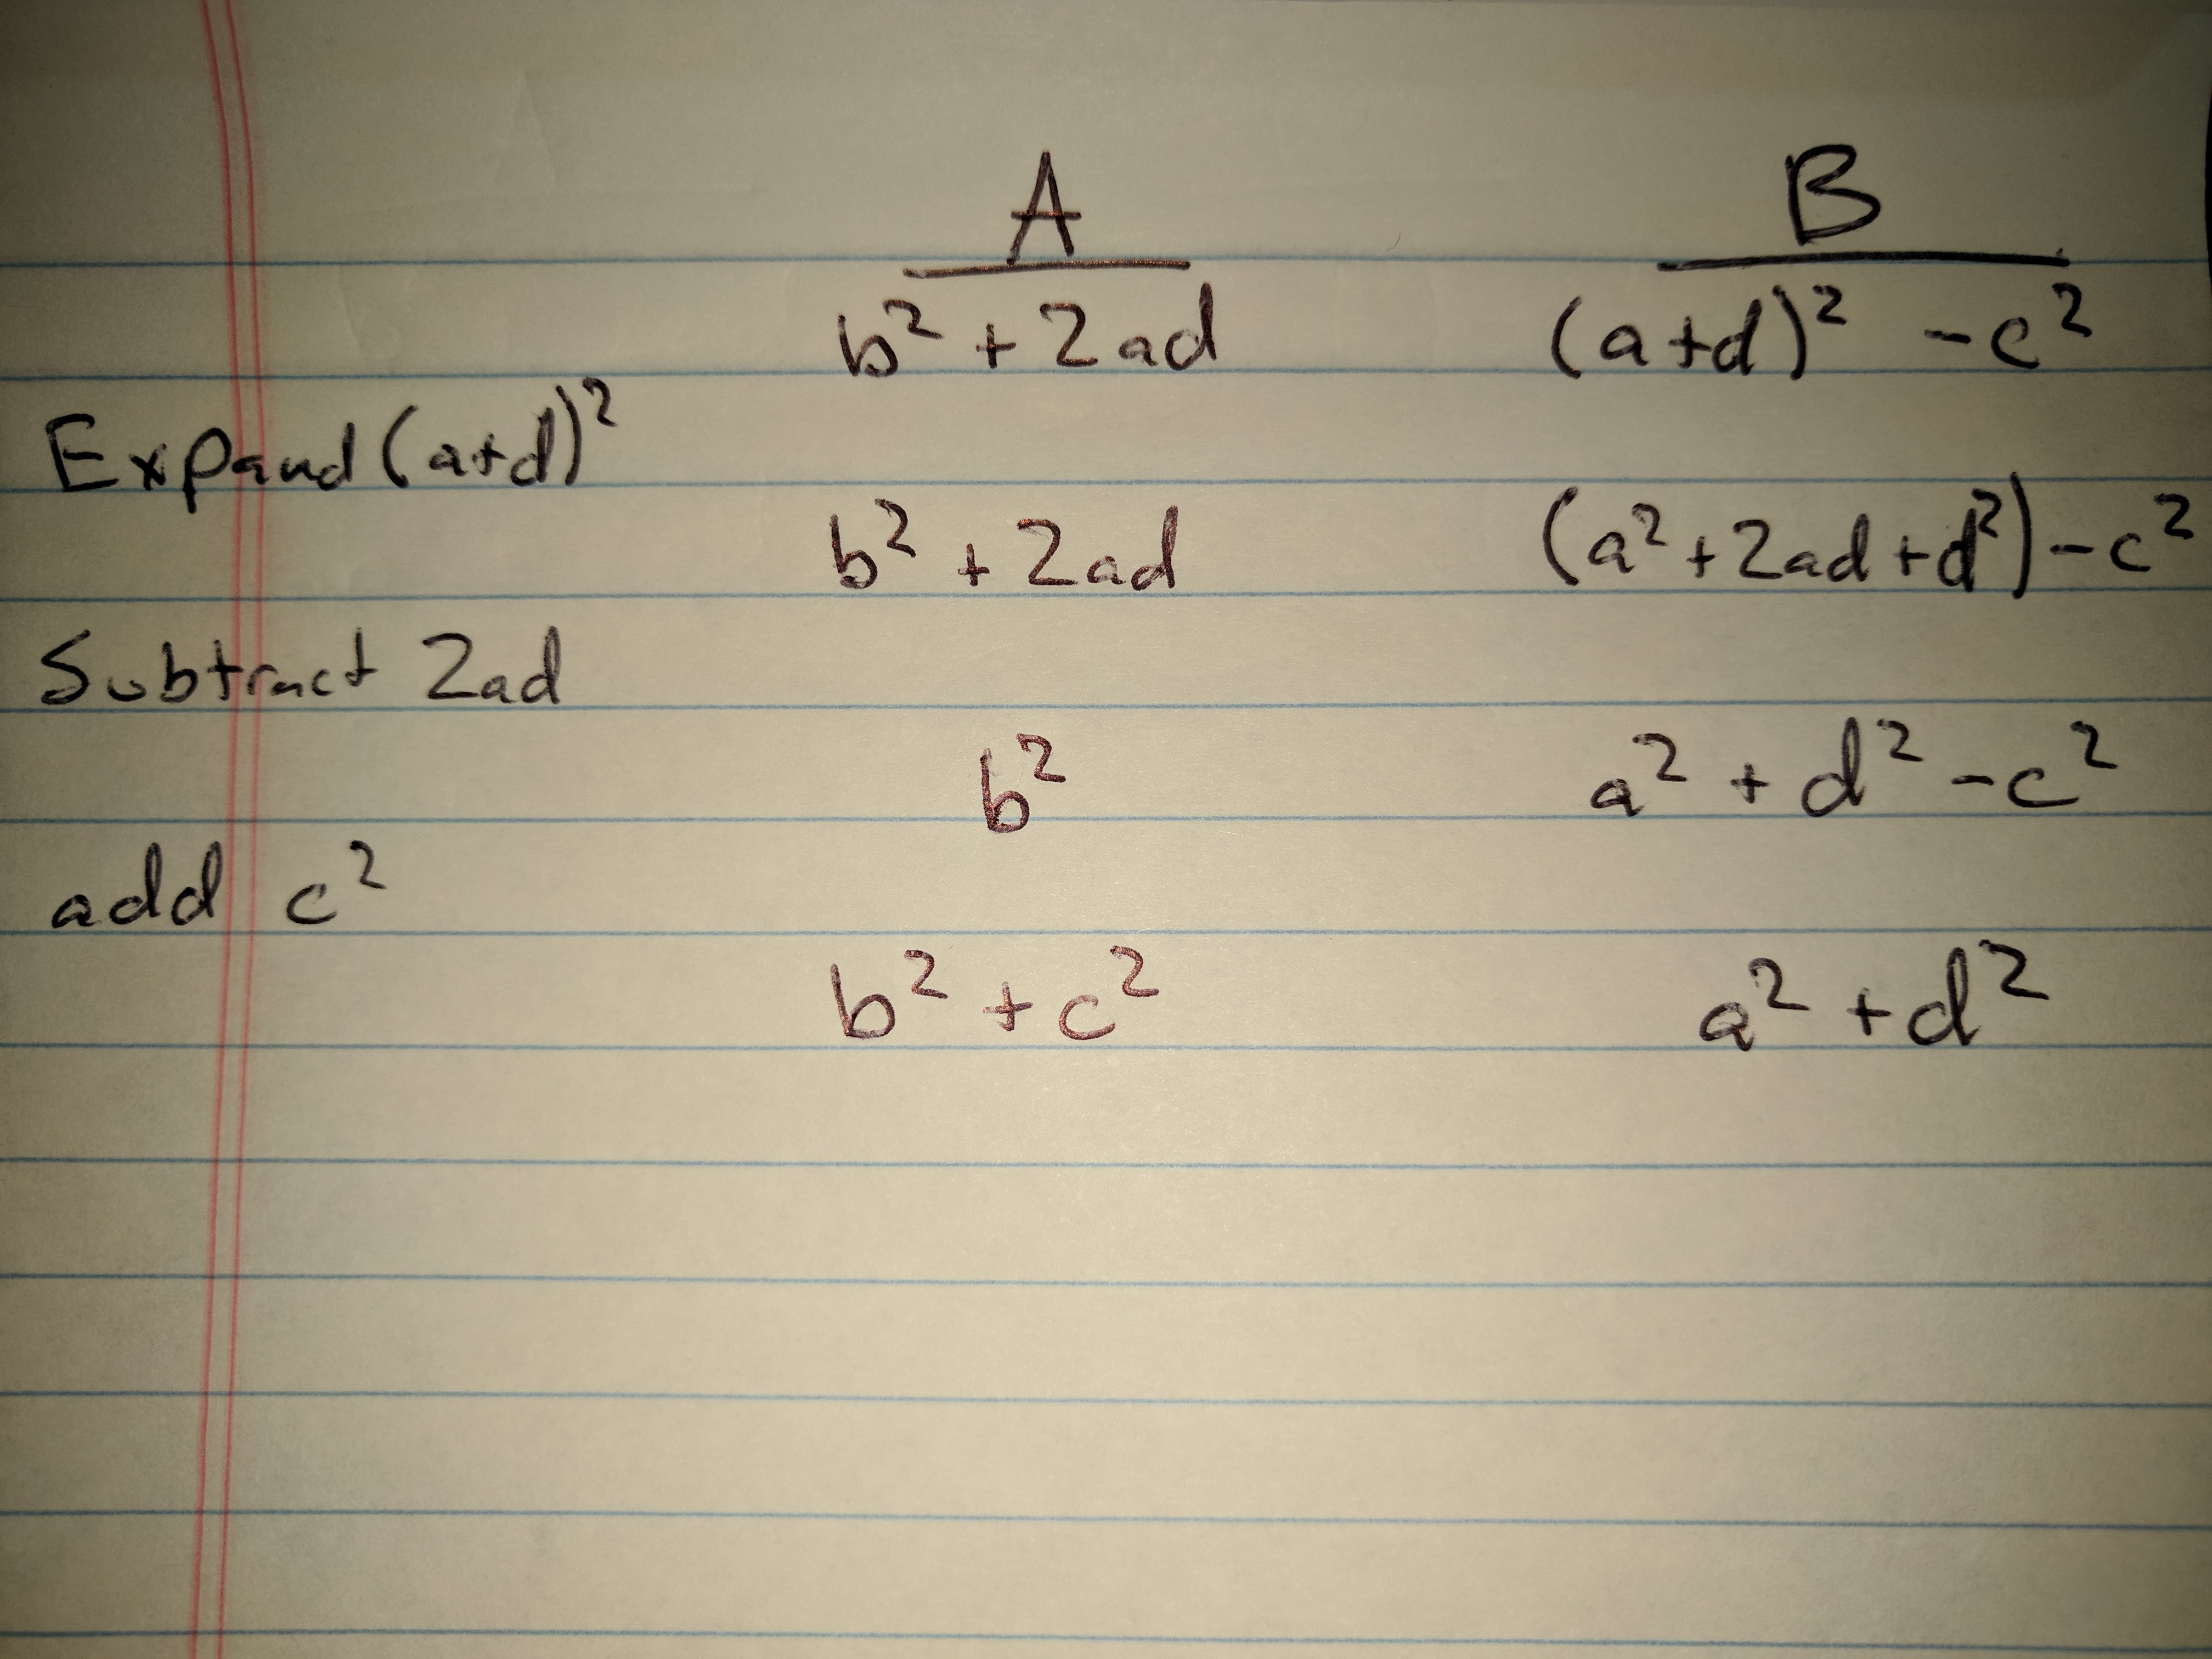 A B
b² + 2ad (a+d)² - c²
Expand (a+d)²
b² + 2ad (a² + 2ad + d²) - c²
Subtract 2ad
b² a² + d² - c²
add c²
b² + c² a² + d²